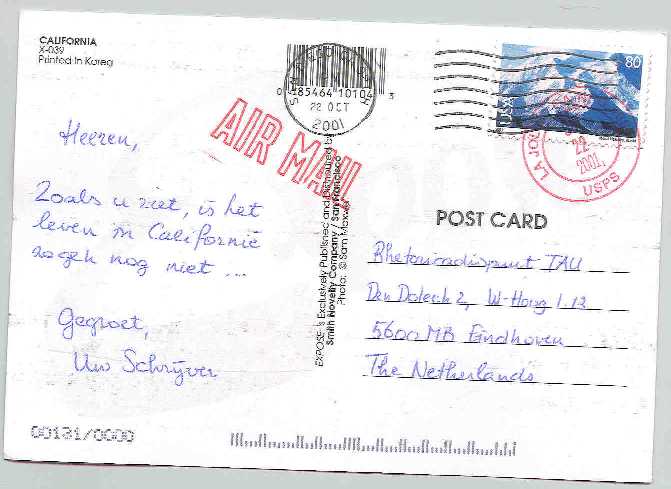 CALIFORNIA
X-039
Printed in Korea
0 85464 10104 3
22 OCT
2001
80
USA
AIR MAIL
LA JOL
22
2001
USPS
Heeren,
Zoals u ziet, is het
leven in Californië
zo gek nog niet ...
Gegroet,
Uw Schrijver
EXPOSE is Exclusively Published and Distributed by
Smith Novelty Company / San Francisco
Photo: © Sam Maxwell
POST CARD
Rhetoricadispuut TAU
Den Dolech 2, W-Hoog 1.12
5600 MB Eindhoven
The Netherlands
00131/0000